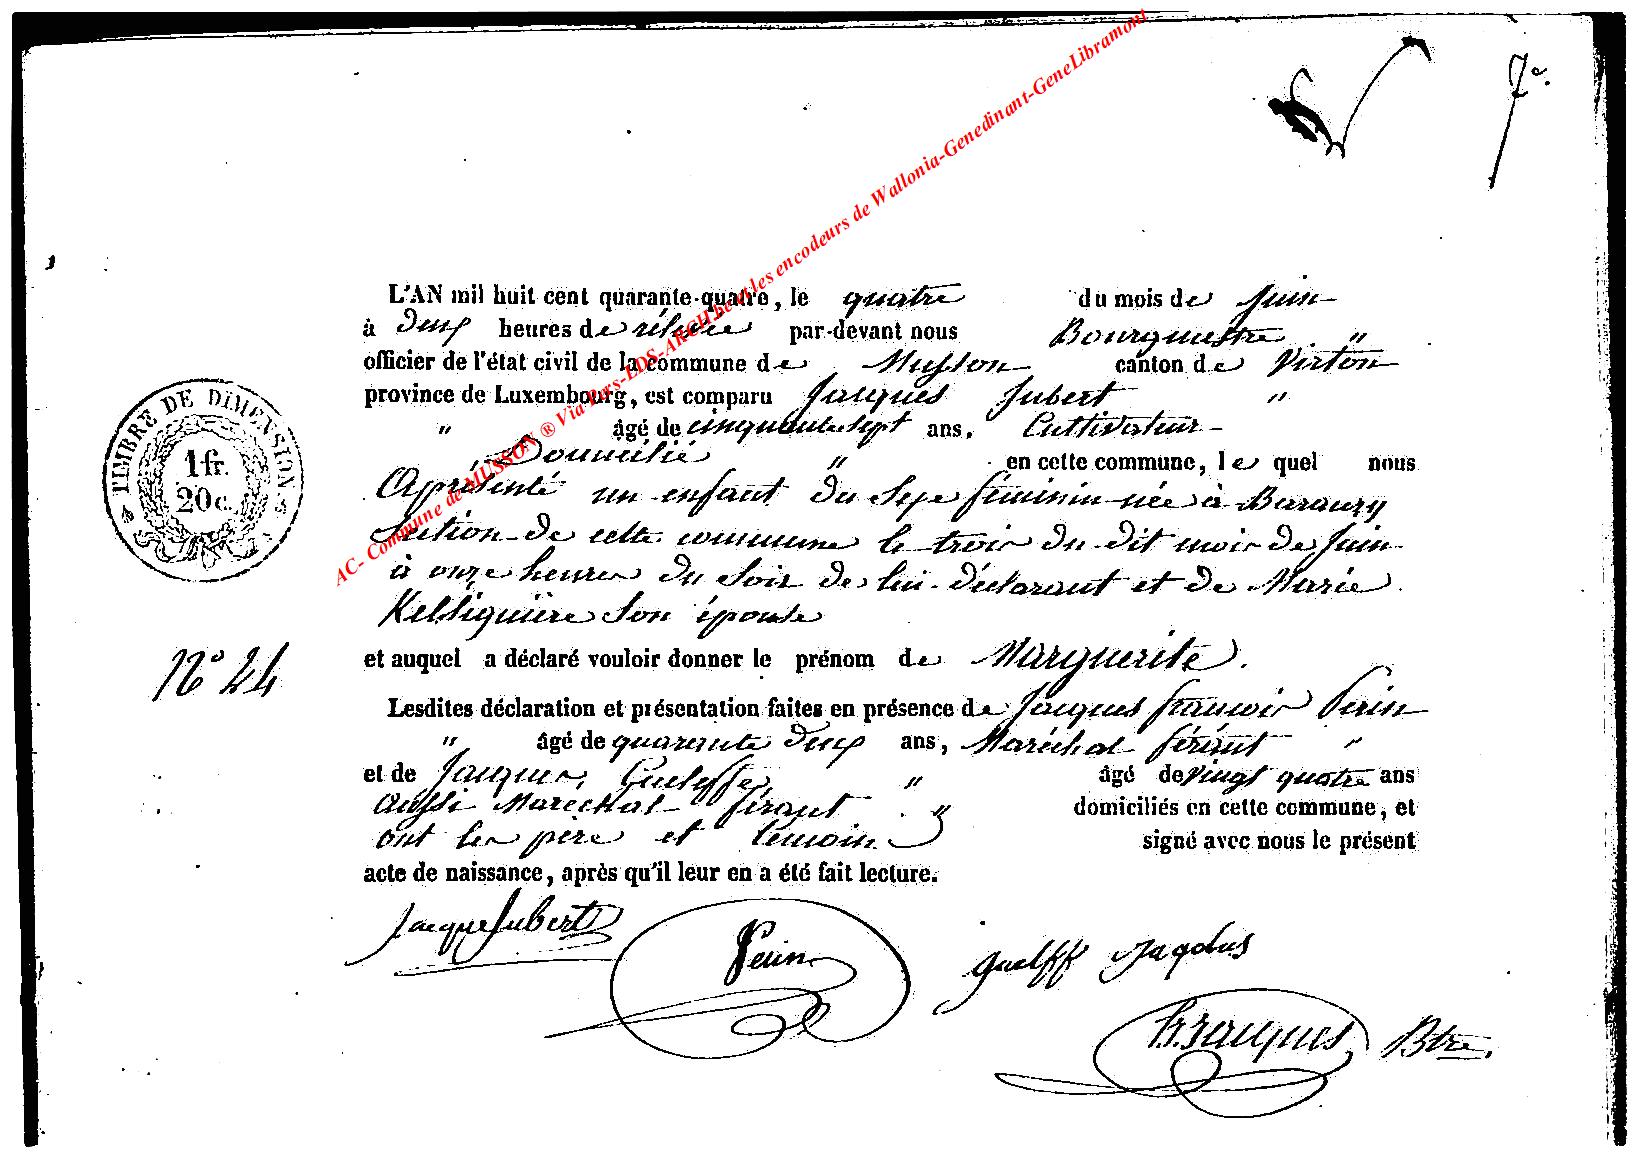 7e.
AC- Commune de MUSSON ® Via Pers-EDS-ARCH.be et les encodeurs de Wallonia-Genedinant-GeneLibramont
L'AN mil huit cent quarante-quatre, le quatre du mois de Juin
à deux heures de rélevée par-devant nous Bourgmestre "
officier de l'état civil de la commune de Musson canton de Virton
province de Luxembourg, est comparu Jacques Jubert "
" âgé de cinquante sept ans, Cultivateur
Domicilié " en cette commune, le quel nous
a présenté un enfant du sexe féminin née à Baranzy
section de cette commune le trois du dit mois de Juin
à onze heures du soir de lui déclarant et de Marie
son épouse
et auquel a déclaré vouloir donner le prénom de Marguerite.
Lesdites déclaration et présentation faites en présence de Jacques françois Perin
" âgé de quarante deux ans, Maréchal férant "
et de Jacques Guelffe, " âgé de vingt quatre ans
aussi Maréchal férant " domiciliés en cette commune, et
ont les père et témoins signé avec nous le présent
acte de naissance, après qu'il leur en a été fait lecture.
TIMBRE DE DIMENSION
1 fr.
20 c.
No 24
Jacque Jubert
Perin
guelff Jaqdus
Jacques Btre.